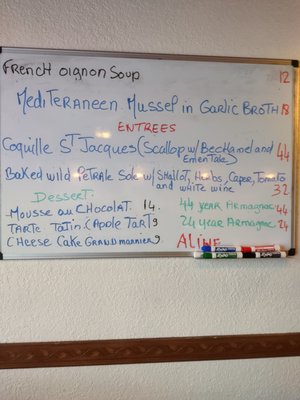 FRENCH OIGNON SOUP 12
MEDITERANEEN MUSSEL IN GARLIC BROTH 18
ENTREES
Coquille ST JACQUES (Scallop w/ BecHamel and 44
EmenTale)
Baked wild PeTRALE Sole w/ SHallot, Herbs, Caper, Tomato
and white wine 32
Dessert:
-Mousse au CHocolAT. 14.
TARTE TATin (Apple TarT) 9
CHeese Cake GRANDMARNIER 9.
44 year ARmagnac 44
24 year ARmagnac 24
ALINE
EXPO
EXPO